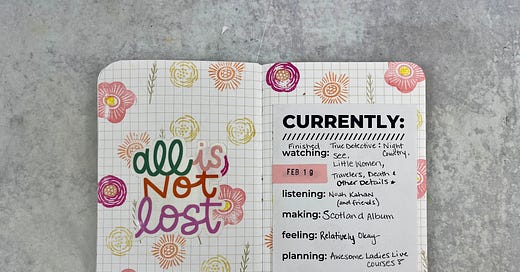 all is,
not
lost
CURRENTLY:
Finished True Detective: Night
watching: See, Country.
Little Women,
FEB 19 Travelers, Death &
Other Details
listening: Noah Kahan
(and friends)
making: Scotland Album
feeling: Relatively Okay
planning: Awesome Ladies Live
courses